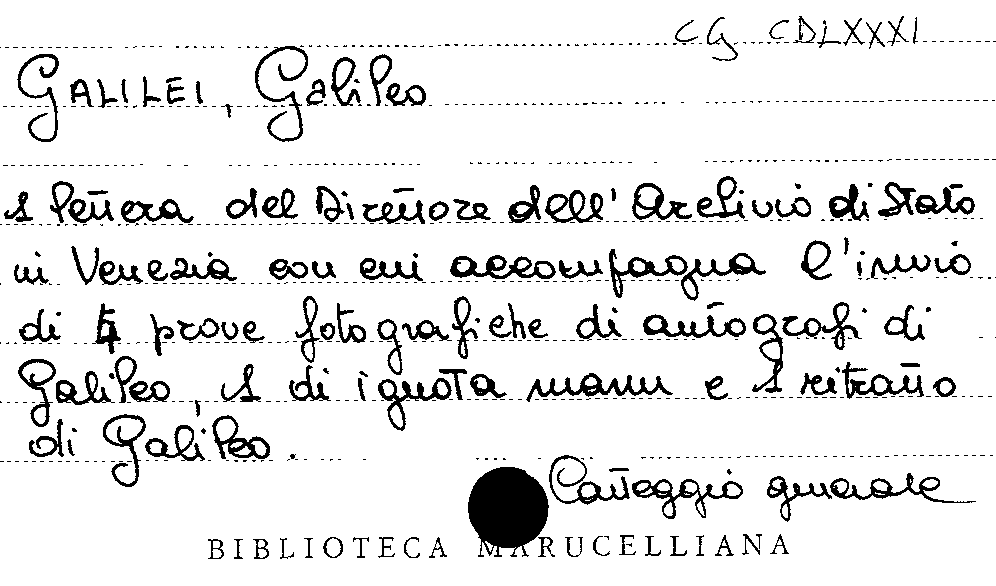 CG CDLXXXI
GALILEI, Galileo
1 lettera del Direttore dell'Archivio di Stato
in Venezia con cui accompagna l'invio
di 4 prove fotografiche di autografi di
Galileo, 1 di ignota manu e 1 ritratto
di Galileo.
Carteggio generale
BIBLIOTECA MARUCELLIANA